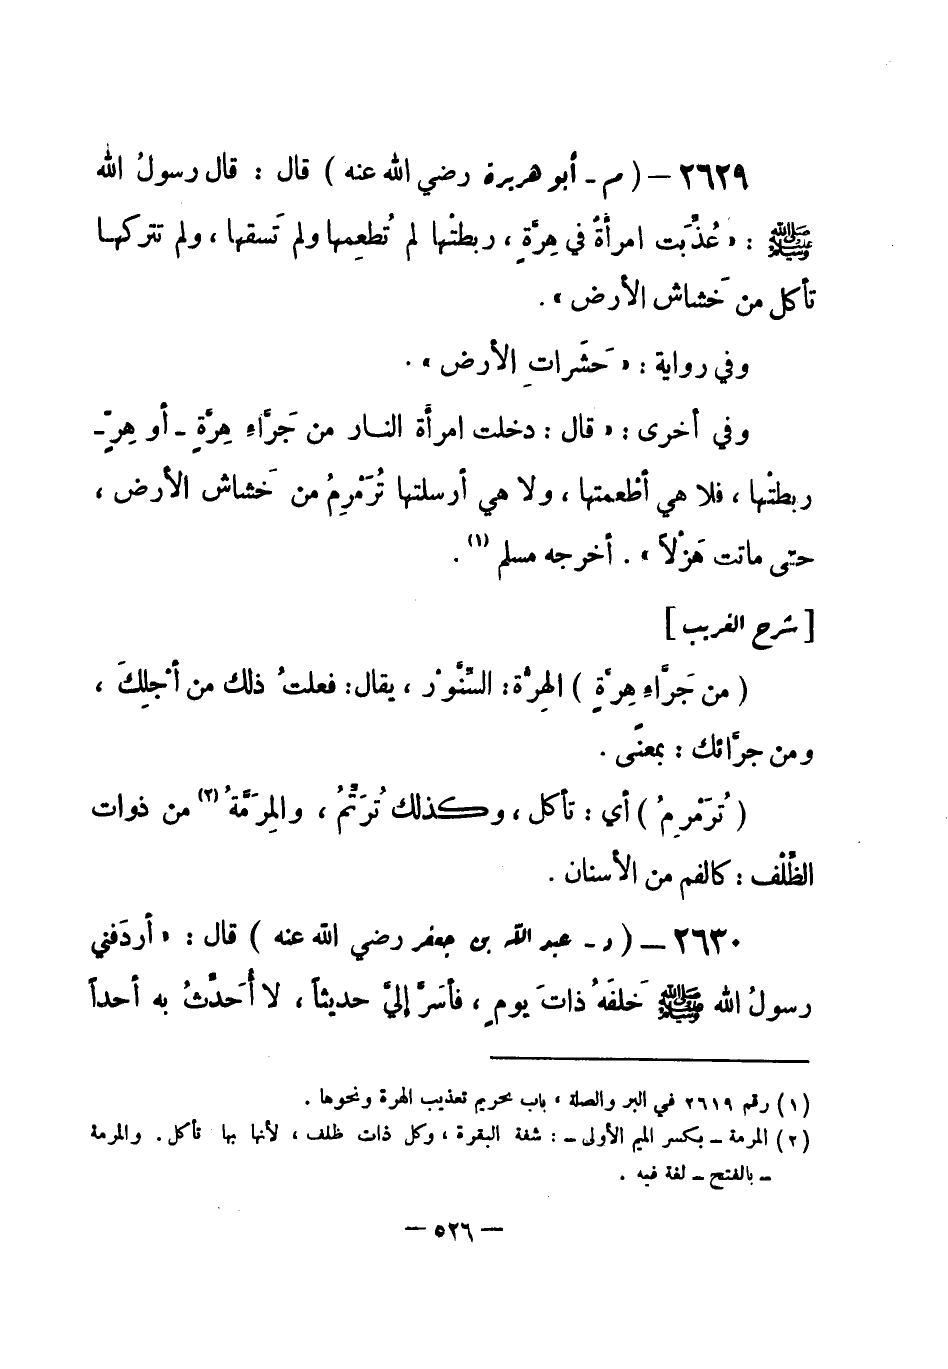 ٢٦٢٩ – ( م - أبو هريرة رضي الله عنه ) قال : قال رسولُ الله
ﷺ : « عُذِّبَت امرأةٌ في هِرَّةٍ ، ربطتْها لم تُطعِمها ولم تَسقها ، ولم تتركها
تأكل من خَشاش الأرض » .
وفي رواية : « حَشَرات الأرض » .
وفي أخرى : « قال : دخلت امرأة النار من جَرَّاءِ هِرَّةٍ - أو هِرٍّ -
ربطتْها ، فلا هي أطْعمتها ، ولا هي أرسلتها تُرَمْرِمُ من خَشاش الأرض ،
حتى ماتت هَزْلاً » . أخرجه مسلم (١) .
[ شرح الغريب ]
( من جَرَّاءِ هِرَّةٍ ) الهِرَّة : السِّنَّوْر ، يقال : فعلتُ ذلك من أجْلِكَ ،
ومن جرَّائك : بمعنًى .
( تُرَمْرِمُ ) أي : تأكل ، وكذلك تُرَتِّمُ ، والمِرَمَّةُ (٢) من ذوات
الظِّلْف : كالفم من الأسنان .
٢٦٣٠ – ( د - عبد الله بن جعفر رضي الله عنه ) قال : « أردَفني
رسولُ الله ﷺ خَلفَهُ ذاتَ يومٍ ، فأسَرَّ إليَّ حديثاً ، لا أُحَدِّثُ به أحداً
(١) رقم ٢٦١٩ في البر والصلة ، باب تحريم تعذيب الهرة ونحوها .
(٢) المرمة – بكسر الميم الأولى – : شفة البقرة ، وكل ذات ظلف ، لأنها بها تأكل . والمرمة
– بالفتح – لغة فيه .
– ٥٢٦ –